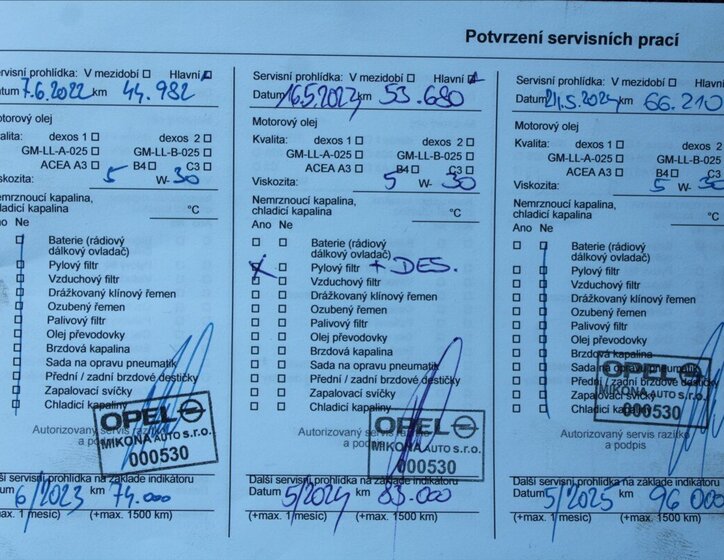 Potvrzení servisních prací
ervisní prohlídka: V mezidobí Hlavní
atum 7.6.2022 km 44.982
otorový olej
valita: dexos 1 dexos 2
GM-LL-A-025 GM-LL-B-025
ACEA A3 B4 C3
iskozita: 5 W- 30
emrznoucí kapalina,
hladicí kapalina °C
no Ne
Baterie (rádiový
dálkový ovladač)
Pylový filtr
Vzduchový filtr
Drážkovaný klínový řemen
Ozubený řemen
Palivový filtr
Olej převodovky
Brzdová kapalina
Sada na opravu pneumatik
Přední / zadní brzdové destičky
Zapalovací svíčky
Chladicí kapalina
Autorizovaný servis razítko
a podpis
OPEL
MIKONA AUTO s.r.o.
000530
alší servisní prohlídka na základě indikátoru
atum 6/2023 km 74.000
(+max. 1 měsíc) (+max. 1500 km)
Servisní prohlídka: V mezidobí Hlavní
Datum 16.5.2023 km 53.680
Motorový olej
Kvalita: dexos 1 dexos 2
GM-LL-A-025 GM-LL-B-025
ACEA A3 B4 C3
Viskozita: 5 W- 30
Nemrznoucí kapalina,
chladicí kapalina °C
Ano Ne
Baterie (rádiový
dálkový ovladač)
Pylový filtr + DES.
Vzduchový filtr
Drážkovaný klínový řemen
Ozubený řemen
Palivový filtr
Olej převodovky
Brzdová kapalina
Sada na opravu pneumatik
Přední / zadní brzdové destičky
Zapalovací svíčky
Chladicí kapalina
Autorizovaný servis razítko
a podpis
OPEL
MIKONA AUTO s.r.o.
000530
Další servisní prohlídka na základě indikátoru
Datum 5/2024 km 83.000
(+max. 1 měsíc) (+max. 1500 km)
Servisní prohlídka: V mezidobí Hlavní
Datum 21.5.2024 km 66.210
Motorový olej
Kvalita: dexos 1 dexos 2
GM-LL-A-025 GM-LL-B-025
ACEA A3 B4 C3
Viskozita: 5 W- 30
Nemrznoucí kapalina,
chladicí kapalina °C
Ano Ne
Baterie (rádiový
dálkový ovladač)
Pylový filtr
Vzduchový filtr
Drážkovaný klínový řemen
Ozubený řemen
Palivový filtr
Olej převodovky
Brzdová kapalina
Sada na opravu pneumatik
Přední / zadní brzdové destičky
Zapalovací svíčky
Chladicí kapalina
Autorizovaný servis razítko
a podpis
OPEL
MIKONA AUTO s.r.o.
000530
Další servisní prohlídka na základě indikátoru
Datum 5/2025 km 96 000
(+max. 1 měsíc) (+max. 1500 km)